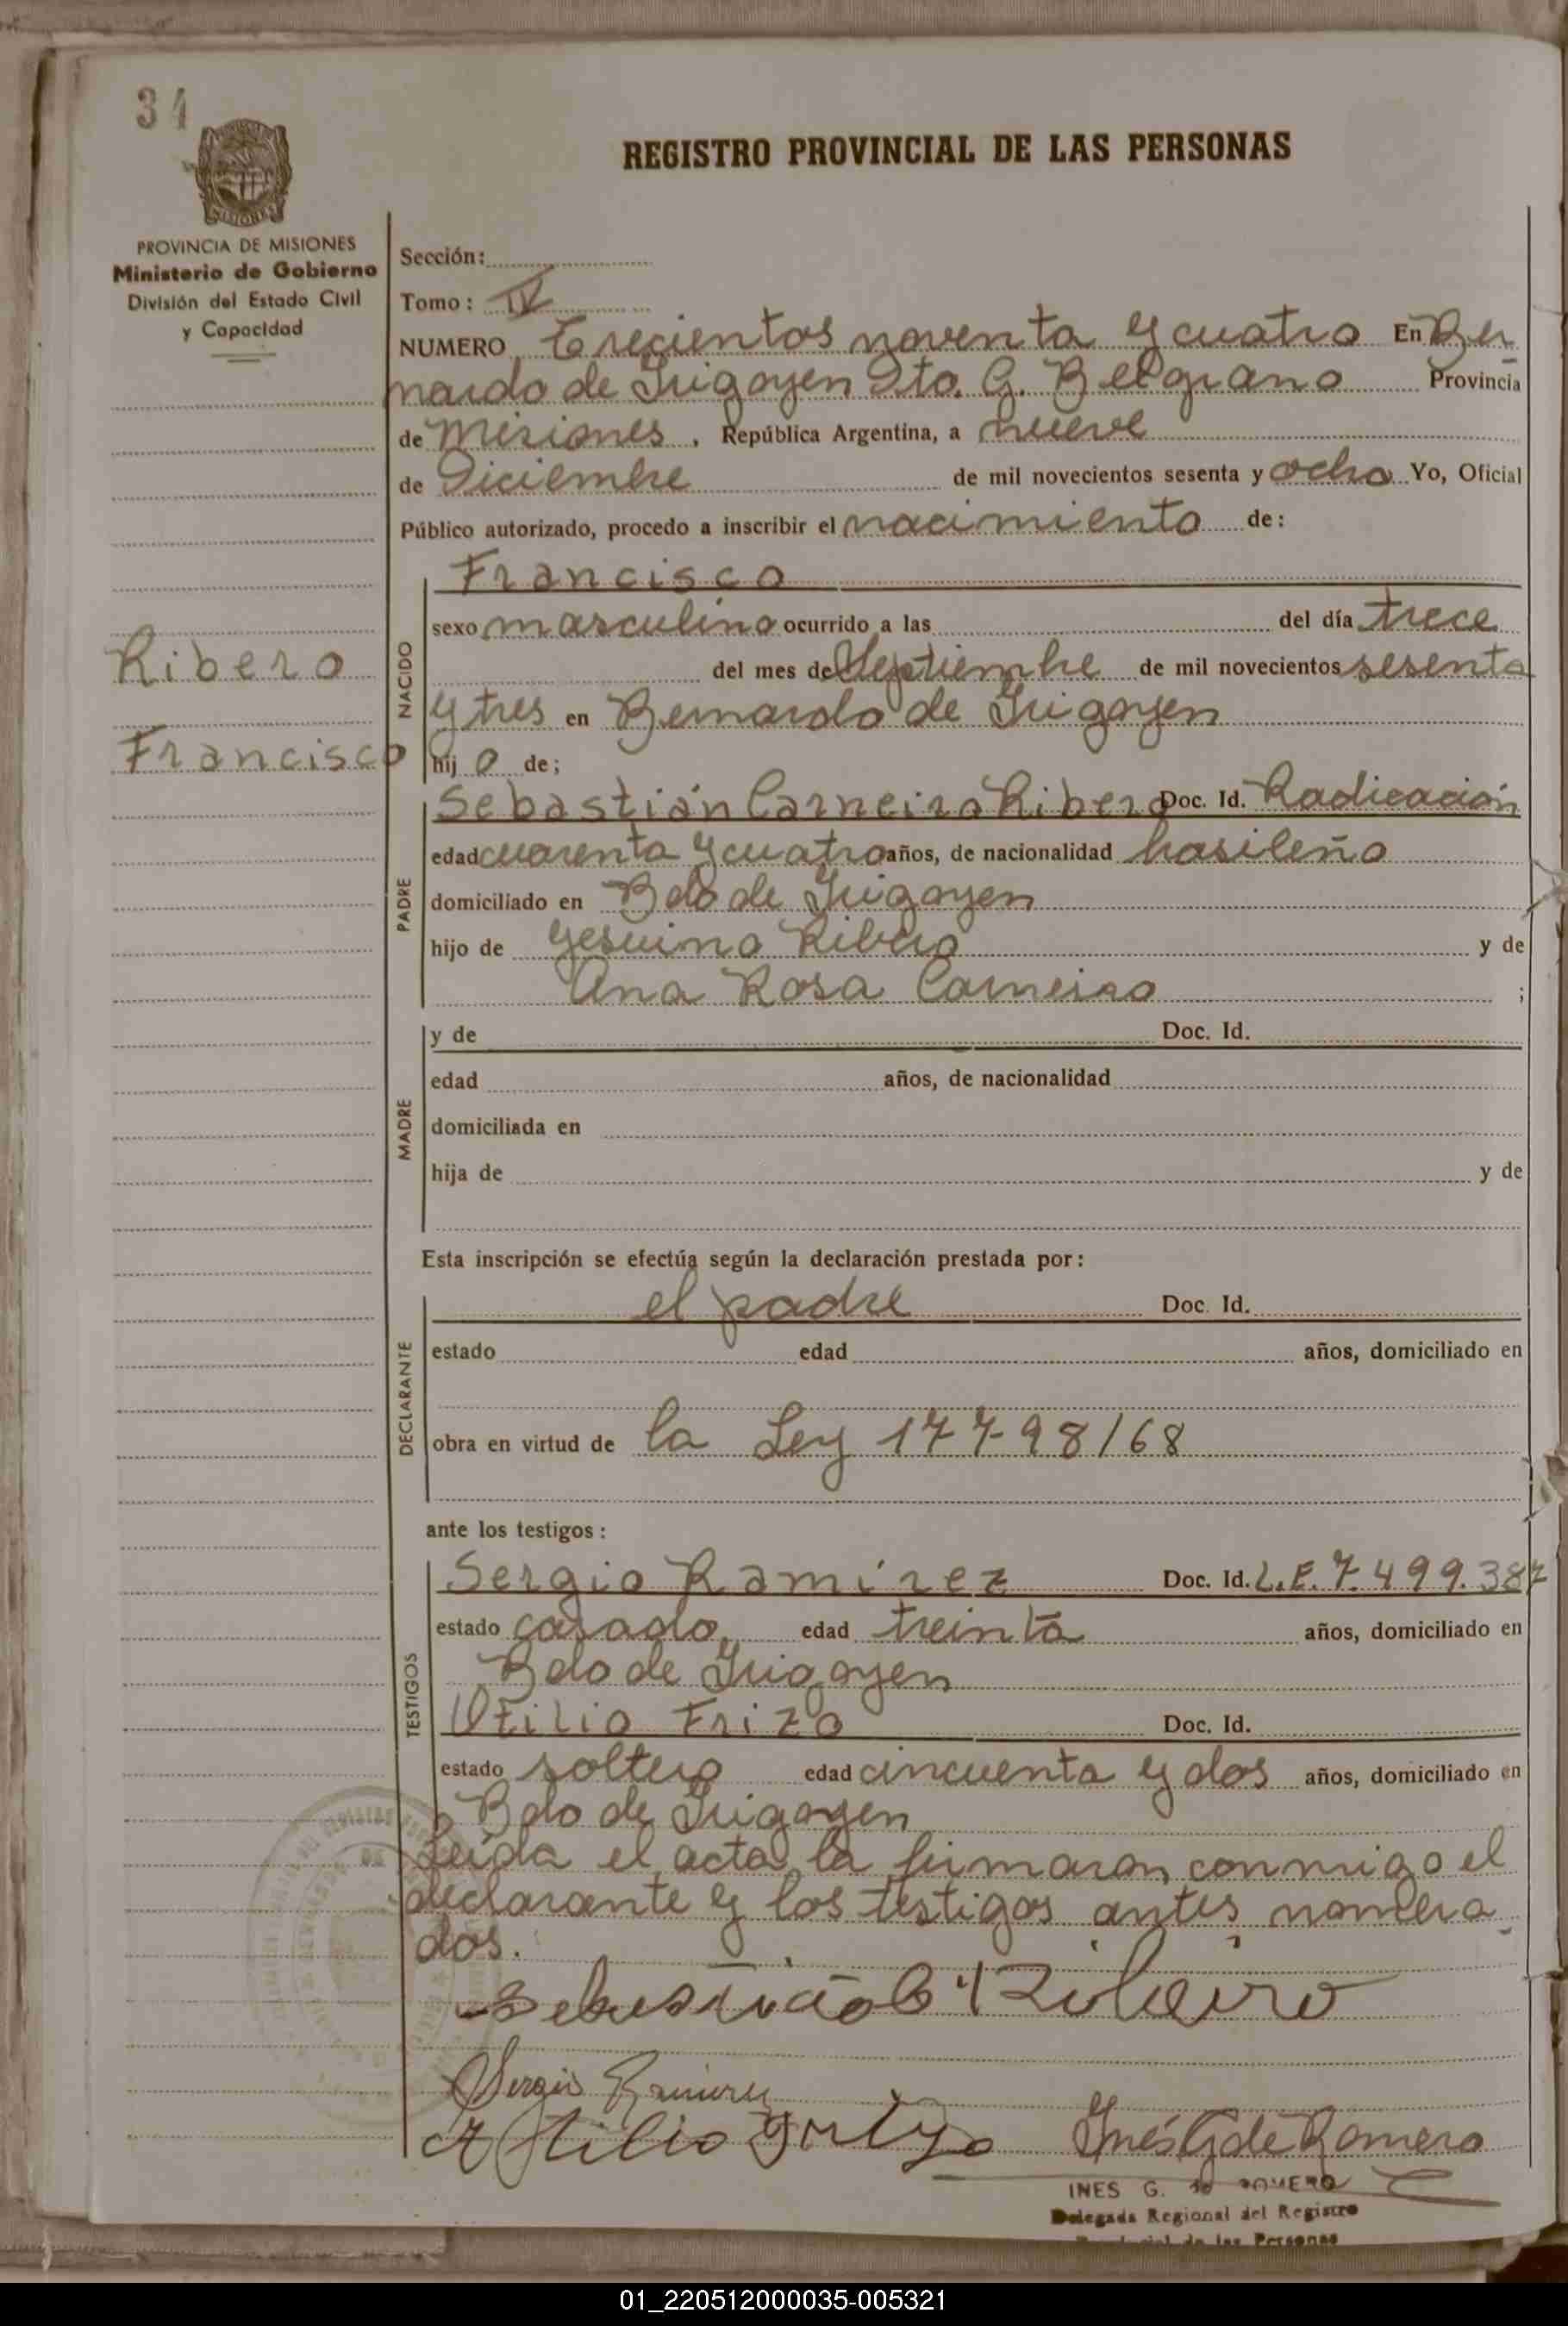 34
REGISTRO PROVINCIAL DE LAS PERSONAS
MISIONES
PROVINCIA DE MISIONES
Ministerio de Gobierno
División del Estado Civil
y Capacidad
Sección:
Tomo: IV
NUMERO Trecientos noventa y cuatro En Ber
nardo de Irigoyen Dto. G. Belgrano Provincia
de Misiones, República Argentina, a nueve
de Diciembre de mil novecientos sesenta y ocho Yo, Oficial
Público autorizado, procedo a inscribir el nacimiento de:
Ribero
Francisco
NACIDO
Francisco
sexo masculino ocurrido a las del día trece
del mes de Septiembre de mil novecientos sesenta
y tres en Bernardo de Irigoyen
hij o de;
PADRE
Sebastián Carneiro Ribero Doc. Id. Radicación
edad cuarenta y cuatro años, de nacionalidad brasileño
domiciliado en Bdo de Irigoyen
hijo de Gesuino Ribero y de
Ana Rosa Carneiro ;
MADRE
y de Doc. Id.
edad años, de nacionalidad
domiciliada en
hija de y de
Esta inscripción se efectúa según la declaración prestada por:
DECLARANTE
el padre Doc. Id.
estado edad años, domiciliado en
obra en virtud de la Ley 17798/68
ante los testigos:
TESTIGOS
Sergio Ramírez Doc. Id. L.E. 7.499.387
estado casado, edad treinta años, domiciliado en
Bdo de Irigoyen
Otilio Frizo Doc. Id.
estado soltero edad cincuenta y dos años, domiciliado en
Bdo de Irigoyen
Leída el acta la firmaron conmigo el
declarante y los testigos antes nombra
dos.
Sebastião C Ribeiro
Sergio Ramirez
Inés G de Romero
INES G. de ROMERO
Delegada Regional del Registro
Provincial de las Personas
01_220512000035-005321